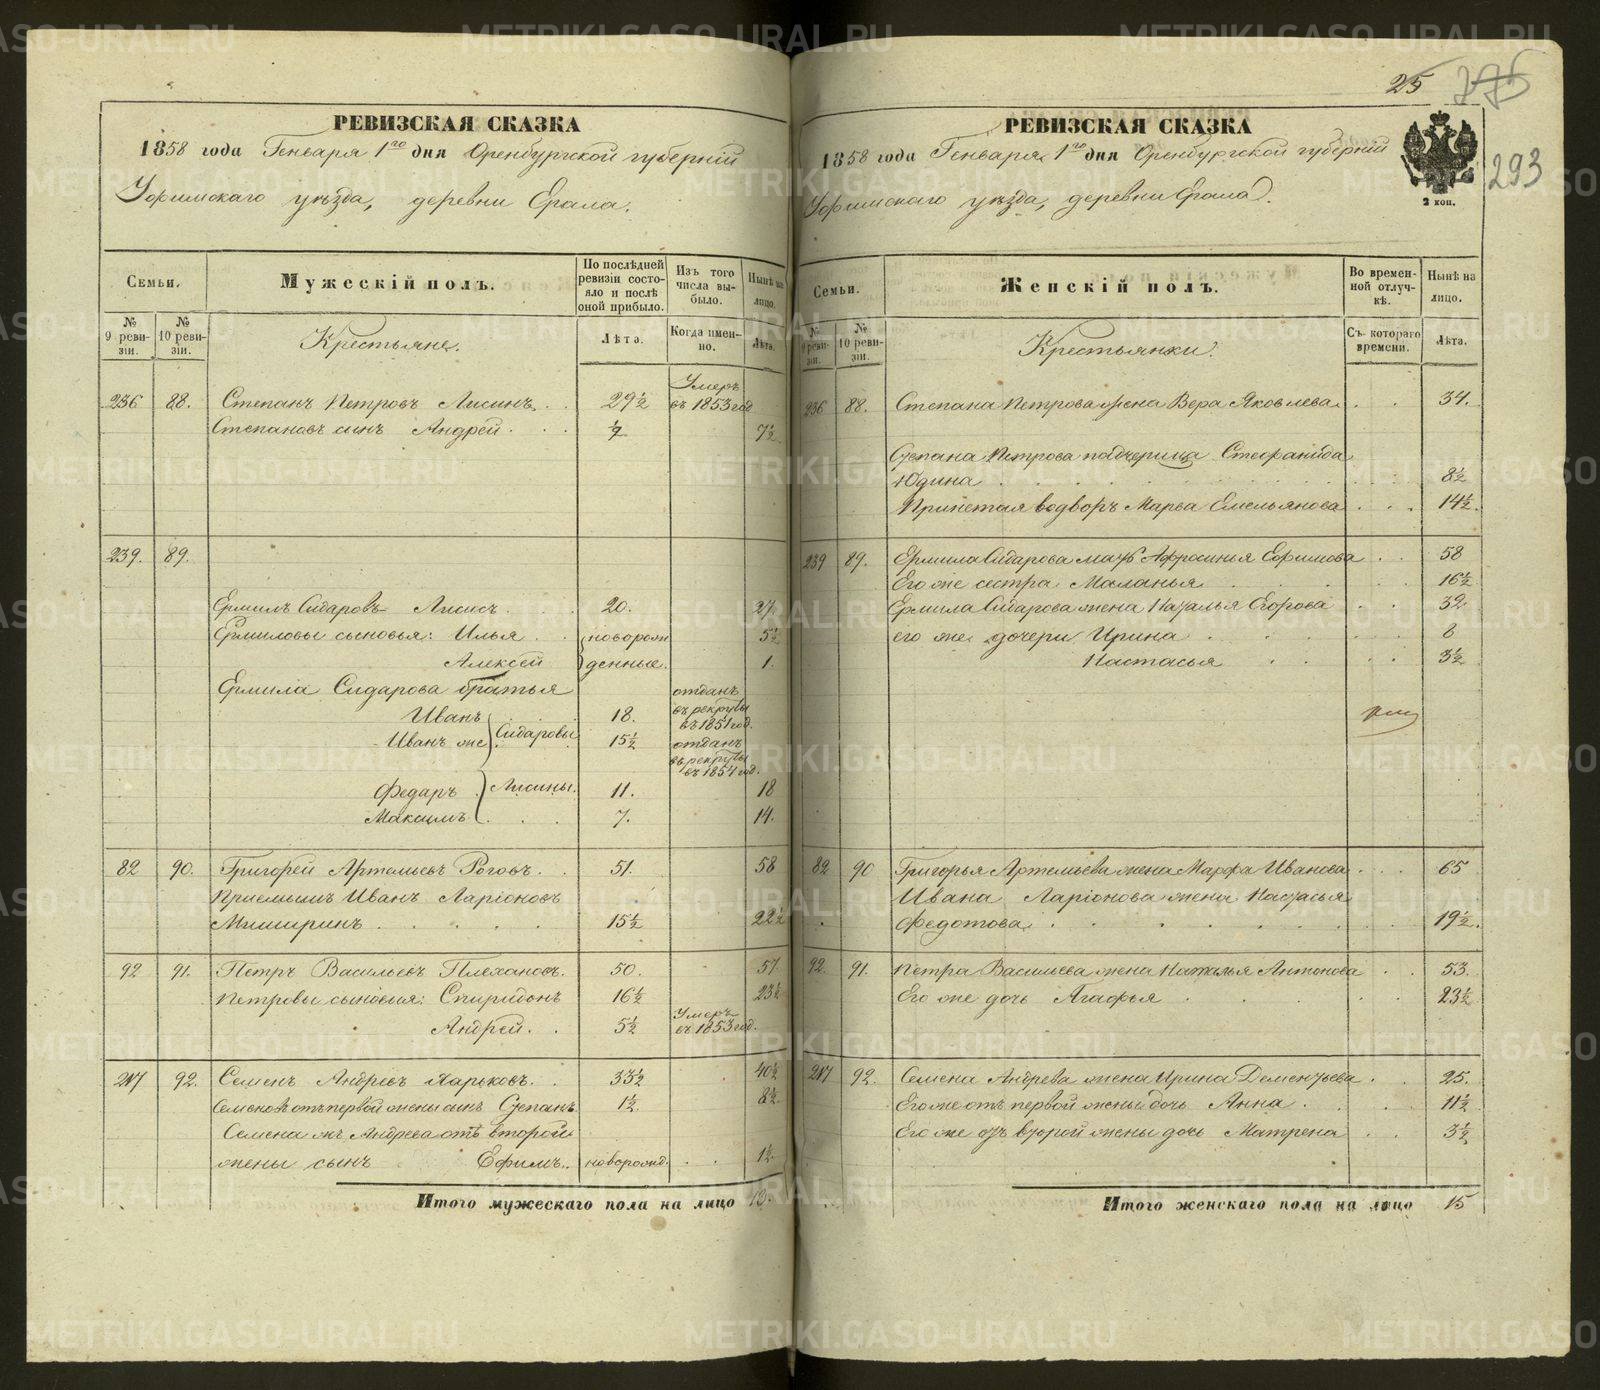 РЕВИЗСКАЯ СКАЗКА
1858 года Генваря 1го дня Оренбургской губернiи
Уфимскаго уѣзда, деревни Ерала.
Семьи.
Мужескiй полъ.
По послѣдней ревизiи состояло и послѣ оной прибыло.
Изъ того числа выбыло.
Нынѣ на лицо.
№ 9 ревизiи.
№ 10 ревизiи.
Крестьяне.
Лѣта.
Когда именно.
Лѣта.
236 88. Степанъ Петровъ Лисинъ. 29½ Умеръ въ 1853 год
Степановъ сынъ Андрей ½ 7½
239. 89.
Ермилъ Сидаровъ Лисинъ. 20. 27.
Ермиловы сыновья: Илья новорож 5½
Алексей денные. 1.
Ермила Сидарова братья
Иванъ 18. отданъ въ рекруты въ 1851 год.
Иванъ же Сидаровы 15½ отданъ въ рекруты въ 1854 год.
Федаръ Лисины. 11. 18
Максимъ 7. 14.
82 90. Григорей Артемьевъ Роговъ. 51. 58
Приемышъ Иванъ Ларiоновъ
Миширинъ 15½ 22½
92 91. Петръ Васильевъ Плехановъ. 50. 57
Петровы сыновья: Спиридонъ 16½ 23½
Андрей. 5½ Умеръ въ 1853 год.
217 92. Семенъ Андреевъ Харьковъ. 33½ 40½
Семеновъ отъ первой жены сынъ Степанъ 1½ 8½
Семена жъ Андреева отъ второй
жены сынъ Ефимъ. новорожд. 1½
Итого мужескаго пола на лицо 13.
25 275
РЕВИЗСКАЯ СКАЗКА
1858 года Генваря 1го дня Оренбургской губернiи
2 коп.
293
Уфимскаго уѣзда, деревни Ерала.
Семьи.
Женскiй полъ.
Во временной отлучкѣ.
Нынѣ на лицо.
№ 9 ревизiи.
№ 10 ревизiи.
Крестьянки.
Съ котораго времени.
Лѣта.
236 88. Степана Петрова жена Вера Яковлева 34.
Степана Петрова падчерица Стефанида
Юдина 8½
Принетая водворъ Марва Емельянова 14½
239 89. Ермила Сидарова мать Афросинья Ефимова 58
Его же сестра Маланья 16½
Ермила Сидарова жена Наталья Егорова 32
его же дочери Ирина 8
Настасья 3½
82 90 Григорья Артемьева жена Марфа Иванова 65
Ивана Ларiонова жена Настасья
Федотова 19½
92. 91. Петра Васильева жена Наталья Антонова 53.
Его же дочь Агафья 23½
217 92. Семена Андрева жена Ирина Дементьева 25.
Его же отъ первой жены дочь Анна 11½
Его же отъ второй жены дочь Матрена 3½
Итого женскаго пола на лицо 15
METRIKI.GASO-URAL.RU